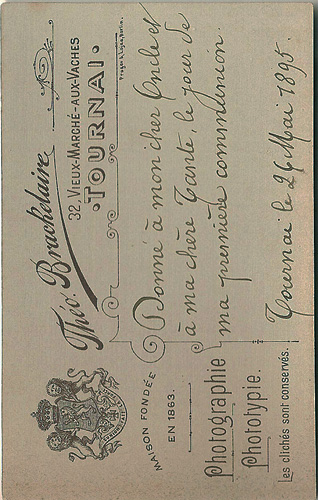 Théo. Brackelaire
32, VIEUX-MARCHÉ-AUX-VACHES
TOURNAI
MAISON FONDÉE
EN 1863.
Photographie
Phototypie.
Les clichés sont conservés.
Donné à mon cher Oncle et
à ma chère Tante, le jour de
ma première communion.
Tournai le 26 Mai 1895.